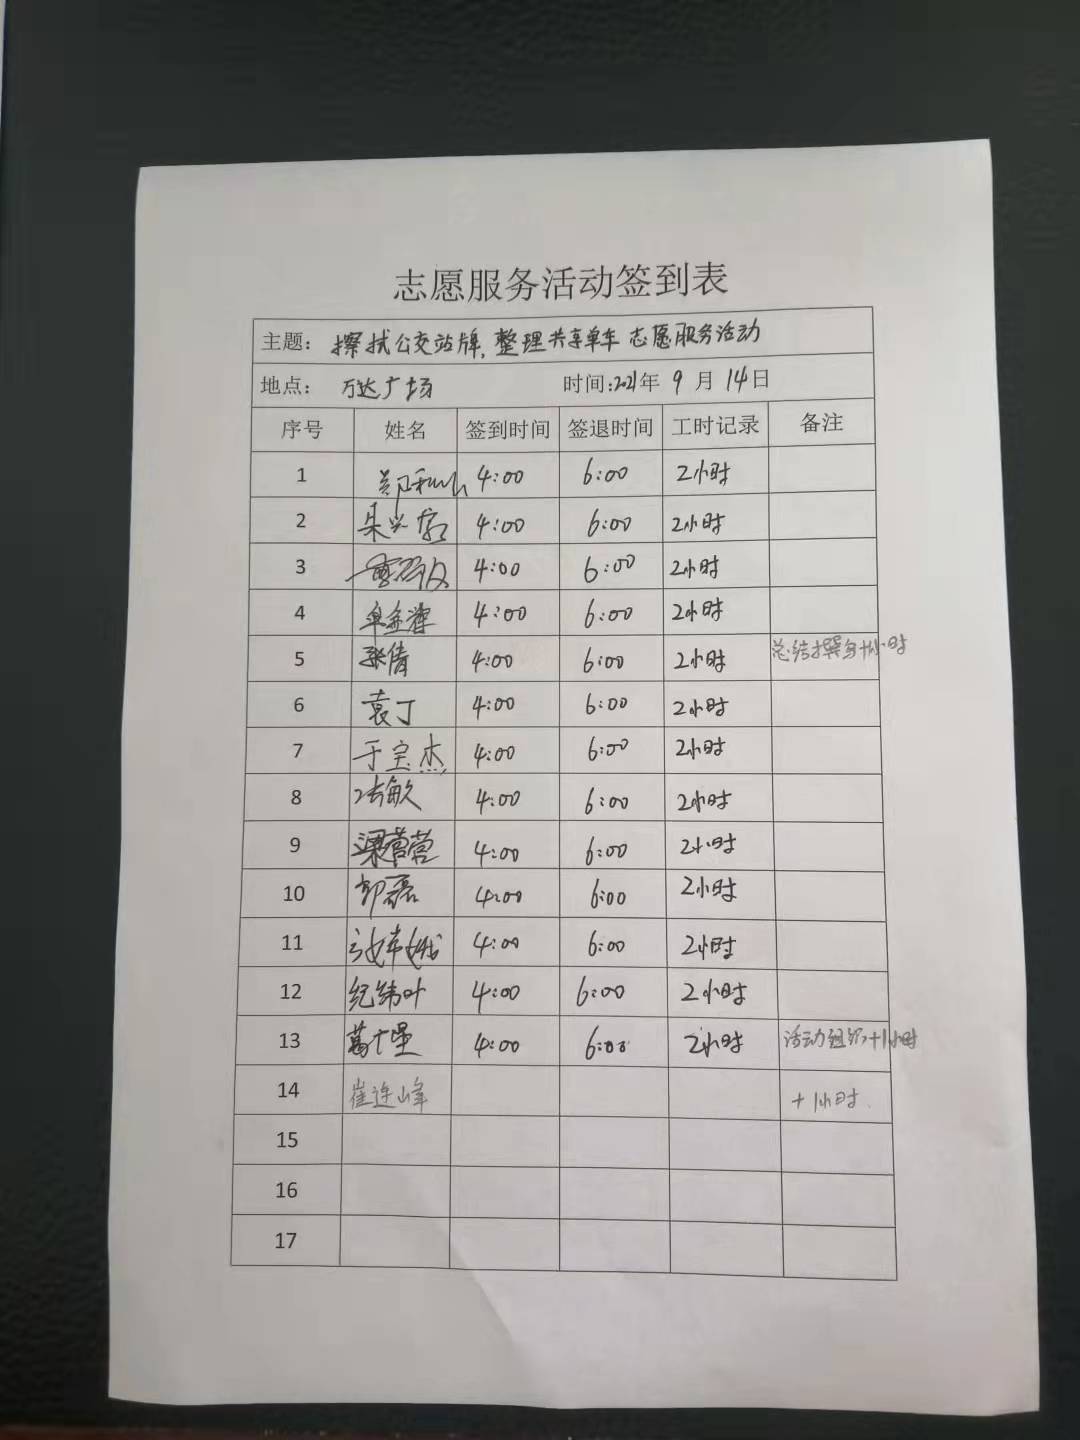 志愿服务活动签到表
主题: 擦拭公交站牌,整理共享单车 志愿服务活动
地点: 万达广场 时间:2021年 9 月 14日
序号 姓名 签到时间 签退时间 工时记录 备注
1 4:00 6:00 2小时
2 朱兴 4:00 6:00 2小时
3 4:00 6:00 2小时
4 单金 4:00 6:00 2小时
5 张倩 4:00 6:00 2小时 总结撰写+1小时
6 袁丁 4:00 6:00 2小时
7 于宝杰 4:00 6:00 2小时
8 张敏 4:00 6:00 2小时
9 梁营营 4:00 6:00 2小时
10 郭磊 4:00 6:00 2小时
11 4:00 6:00 2小时
12 纪纬叶 4:00 6:00 2小时
13 葛士星 4:00 6:00 2小时 活动组织+1小时
14 崔连峰 +1小时
15
16
17